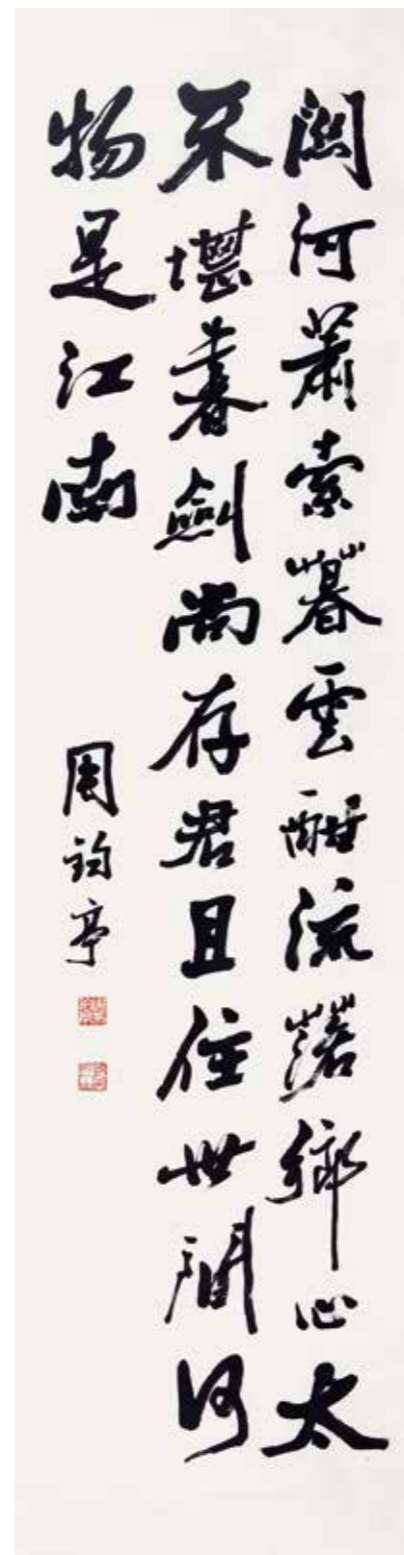 關河蕭索暮雲酣流落鄉心太
不堪書劍尚存君且住世間何
物是江南
周亭